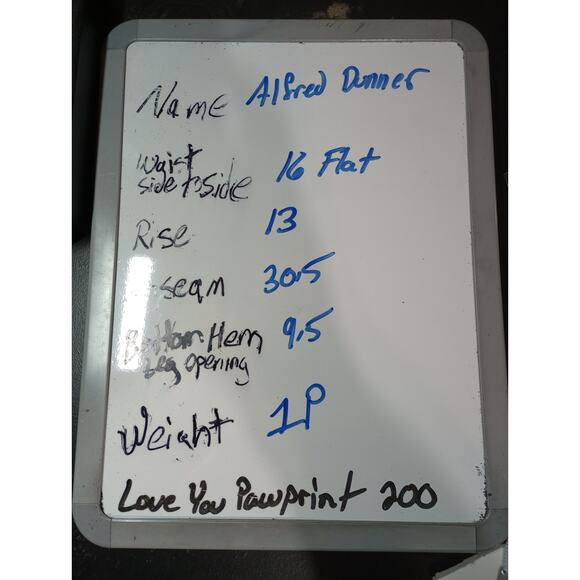 Name Alfred Dunner
Waist
side to side 16 Flat
Rise 13
-seam 30.5
Bottom Hem 9.5
Leg Opening
Weight 1P
Love You Pawprint 200